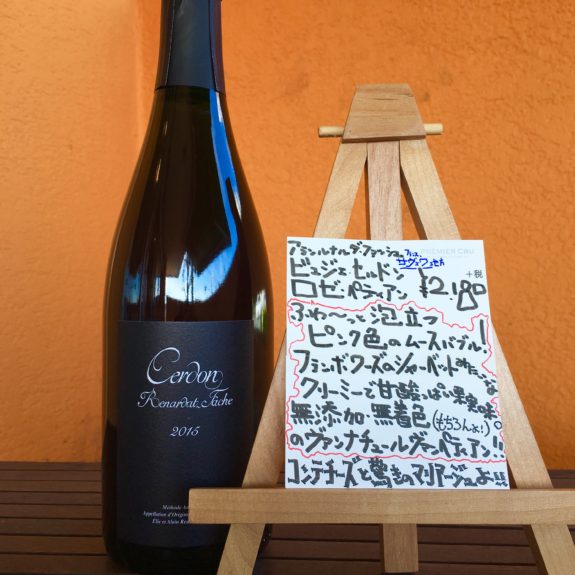 Cerdon
Renardat-Fâche
2015
Appellation d'Origine
Elie et Alain
PREMIER CRU
アランルナルダ・ファッシュ
ビュジェ・セルドン
ロゼ・ペティアン ¥2,180
+税
ふわ〜っと泡立つ
ピンク色のムースバブル!
フランボワーズのシャーベットみたいな
クリーミーで甘酸っぱい果実味
無添加・無着色(もちろんよ!)。
のヴァンナチュールヴァンペティアン!!
コンテチーズと驚きのマリアージュよ